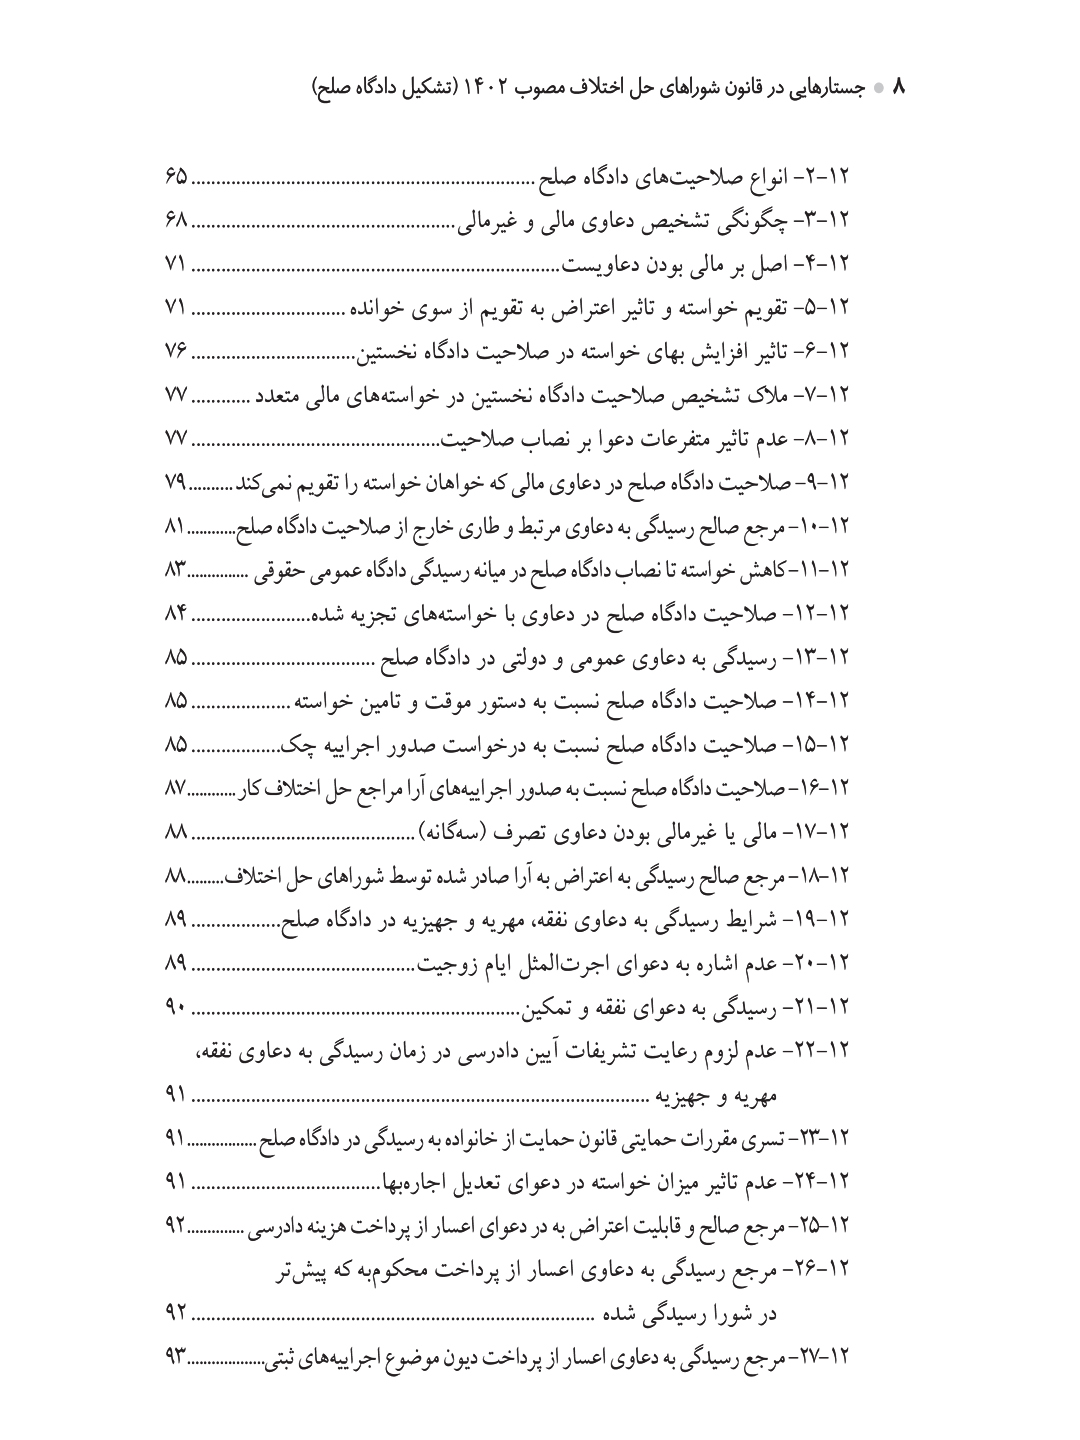 ۸ ● جستارهایی در قانون شوراهای حل اختلاف مصوب ۱۴۰۲ (تشکیل دادگاه صلح)
۱۲-۲- انواع صلاحیت‌های دادگاه صلح ........ ۶۵
۱۲-۳- چگونگی تشخیص دعاوی مالی و غیرمالی ........ ۶۸
۱۲-۴- اصل بر مالی بودن دعاویست ........ ۷۱
۱۲-۵- تقویم خواسته و تاثیر اعتراض به تقویم از سوی خوانده ........ ۷۱
۱۲-۶- تاثیر افزایش بهای خواسته در صلاحیت دادگاه نخستین ........ ۷۶
۱۲-۷- ملاک تشخیص صلاحیت دادگاه نخستین در خواسته‌های مالی متعدد ........ ۷۷
۱۲-۸- عدم تاثیر متفرعات دعوا بر نصاب صلاحیت ........ ۷۷
۱۲-۹- صلاحیت دادگاه صلح در دعاوی مالی که خواهان خواسته را تقویم نمی‌کند ........ ۷۹
۱۲-۱۰- مرجع صالح رسیدگی به دعاوی مرتبط و طاری خارج از صلاحیت دادگاه صلح ........ ۸۱
۱۲-۱۱- کاهش خواسته تا نصاب دادگاه صلح در میانه رسیدگی دادگاه عمومی حقوقی ........ ۸۳
۱۲-۱۲- صلاحیت دادگاه صلح در دعاوی با خواسته‌های تجزیه شده ........ ۸۴
۱۲-۱۳- رسیدگی به دعاوی عمومی و دولتی در دادگاه صلح ........ ۸۵
۱۲-۱۴- صلاحیت دادگاه صلح نسبت به دستور موقت و تامین خواسته ........ ۸۵
۱۲-۱۵- صلاحیت دادگاه صلح نسبت به درخواست صدور اجراییه چک ........ ۸۵
۱۲-۱۶- صلاحیت دادگاه صلح نسبت به صدور اجراییه‌های آرا مراجع حل اختلاف کار ........ ۸۷
۱۲-۱۷- مالی یا غیرمالی بودن دعاوی تصرف (سه‌گانه) ........ ۸۸
۱۲-۱۸- مرجع صالح رسیدگی به اعتراض به آرا صادر شده توسط شوراهای حل اختلاف ........ ۸۸
۱۲-۱۹- شرایط رسیدگی به دعاوی نفقه، مهریه و جهیزیه در دادگاه صلح ........ ۸۹
۱۲-۲۰- عدم اشاره به دعوای اجرت‌المثل ایام زوجیت ........ ۸۹
۱۲-۲۱- رسیدگی به دعوای نفقه و تمکین ........ ۹۰
۱۲-۲۲- عدم لزوم رعایت تشریفات آیین دادرسی در زمان رسیدگی به دعاوی نفقه،
مهریه و جهیزیه ........ ۹۱
۱۲-۲۳- تسری مقررات حمایتی قانون حمایت از خانواده به رسیدگی در دادگاه صلح ........ ۹۱
۱۲-۲۴- عدم تاثیر میزان خواسته در دعوای تعدیل اجاره‌بها ........ ۹۱
۱۲-۲۵- مرجع صالح و قابلیت اعتراض به در دعوای اعسار از پرداخت هزینه دادرسی ........ ۹۲
۱۲-۲۶- مرجع رسیدگی به دعاوی اعسار از پرداخت محکوم‌به که پیش‌تر
در شورا رسیدگی شده ........ ۹۲
۱۲-۲۷- مرجع رسیدگی به دعاوی اعسار از پرداخت دیون موضوع اجراییه‌های ثبتی ........ ۹۳